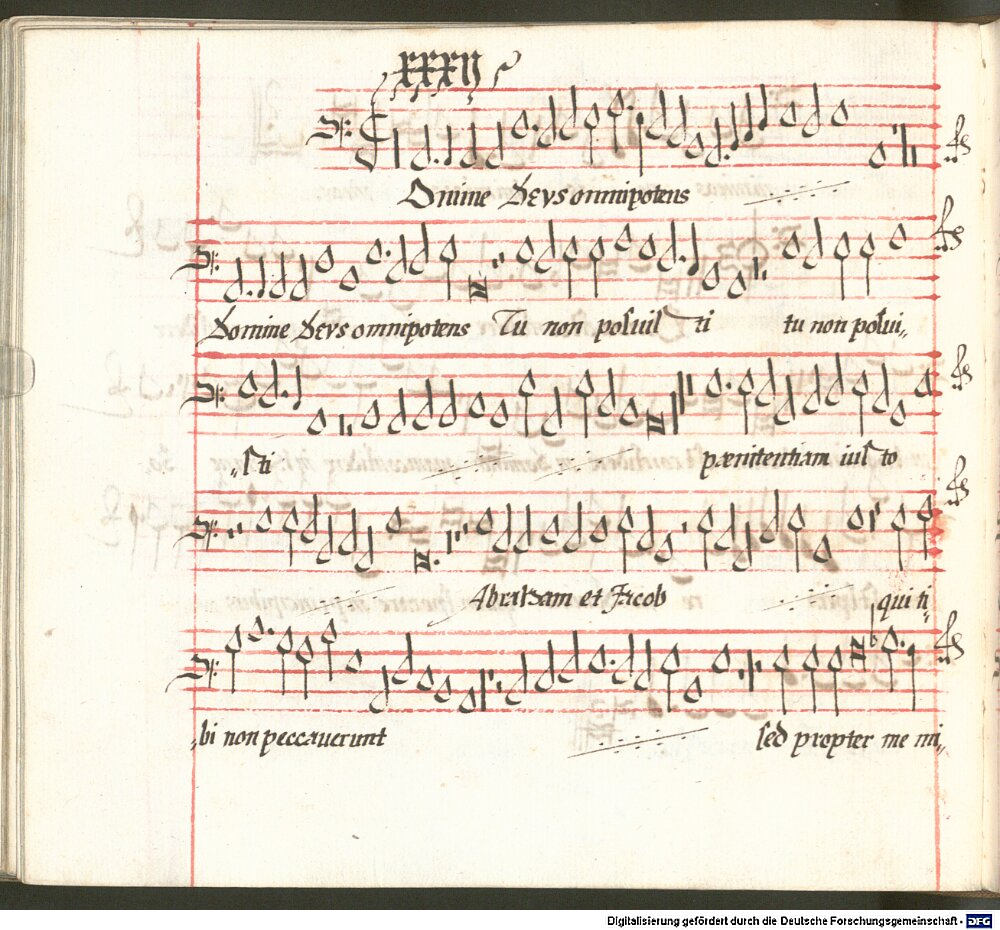 xxxij
Omine Deus omnipotens
Domine Deus omnipotens Tu non posuisti tu non posui„
„sti pœnitentiam iusto
Abraham et Jacob qui ti„
„bi non peccaverunt sed propter me mi„
Digitalisierung gefördert durch die Deutsche Forschungsgemeinschaft - DFG